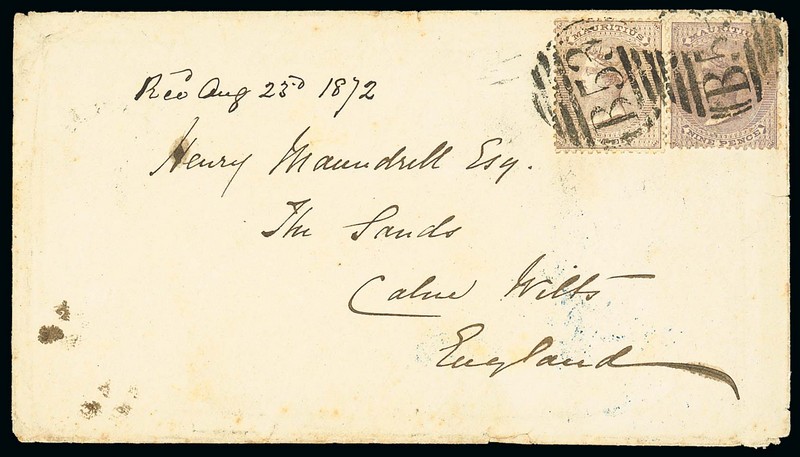 MAURITIUS MAURITIUS
B53 B53
NINE PENCE
Recd Aug 23rd 1872
Henry Maundrell Esq.
The Sands
Calne Wilts
England